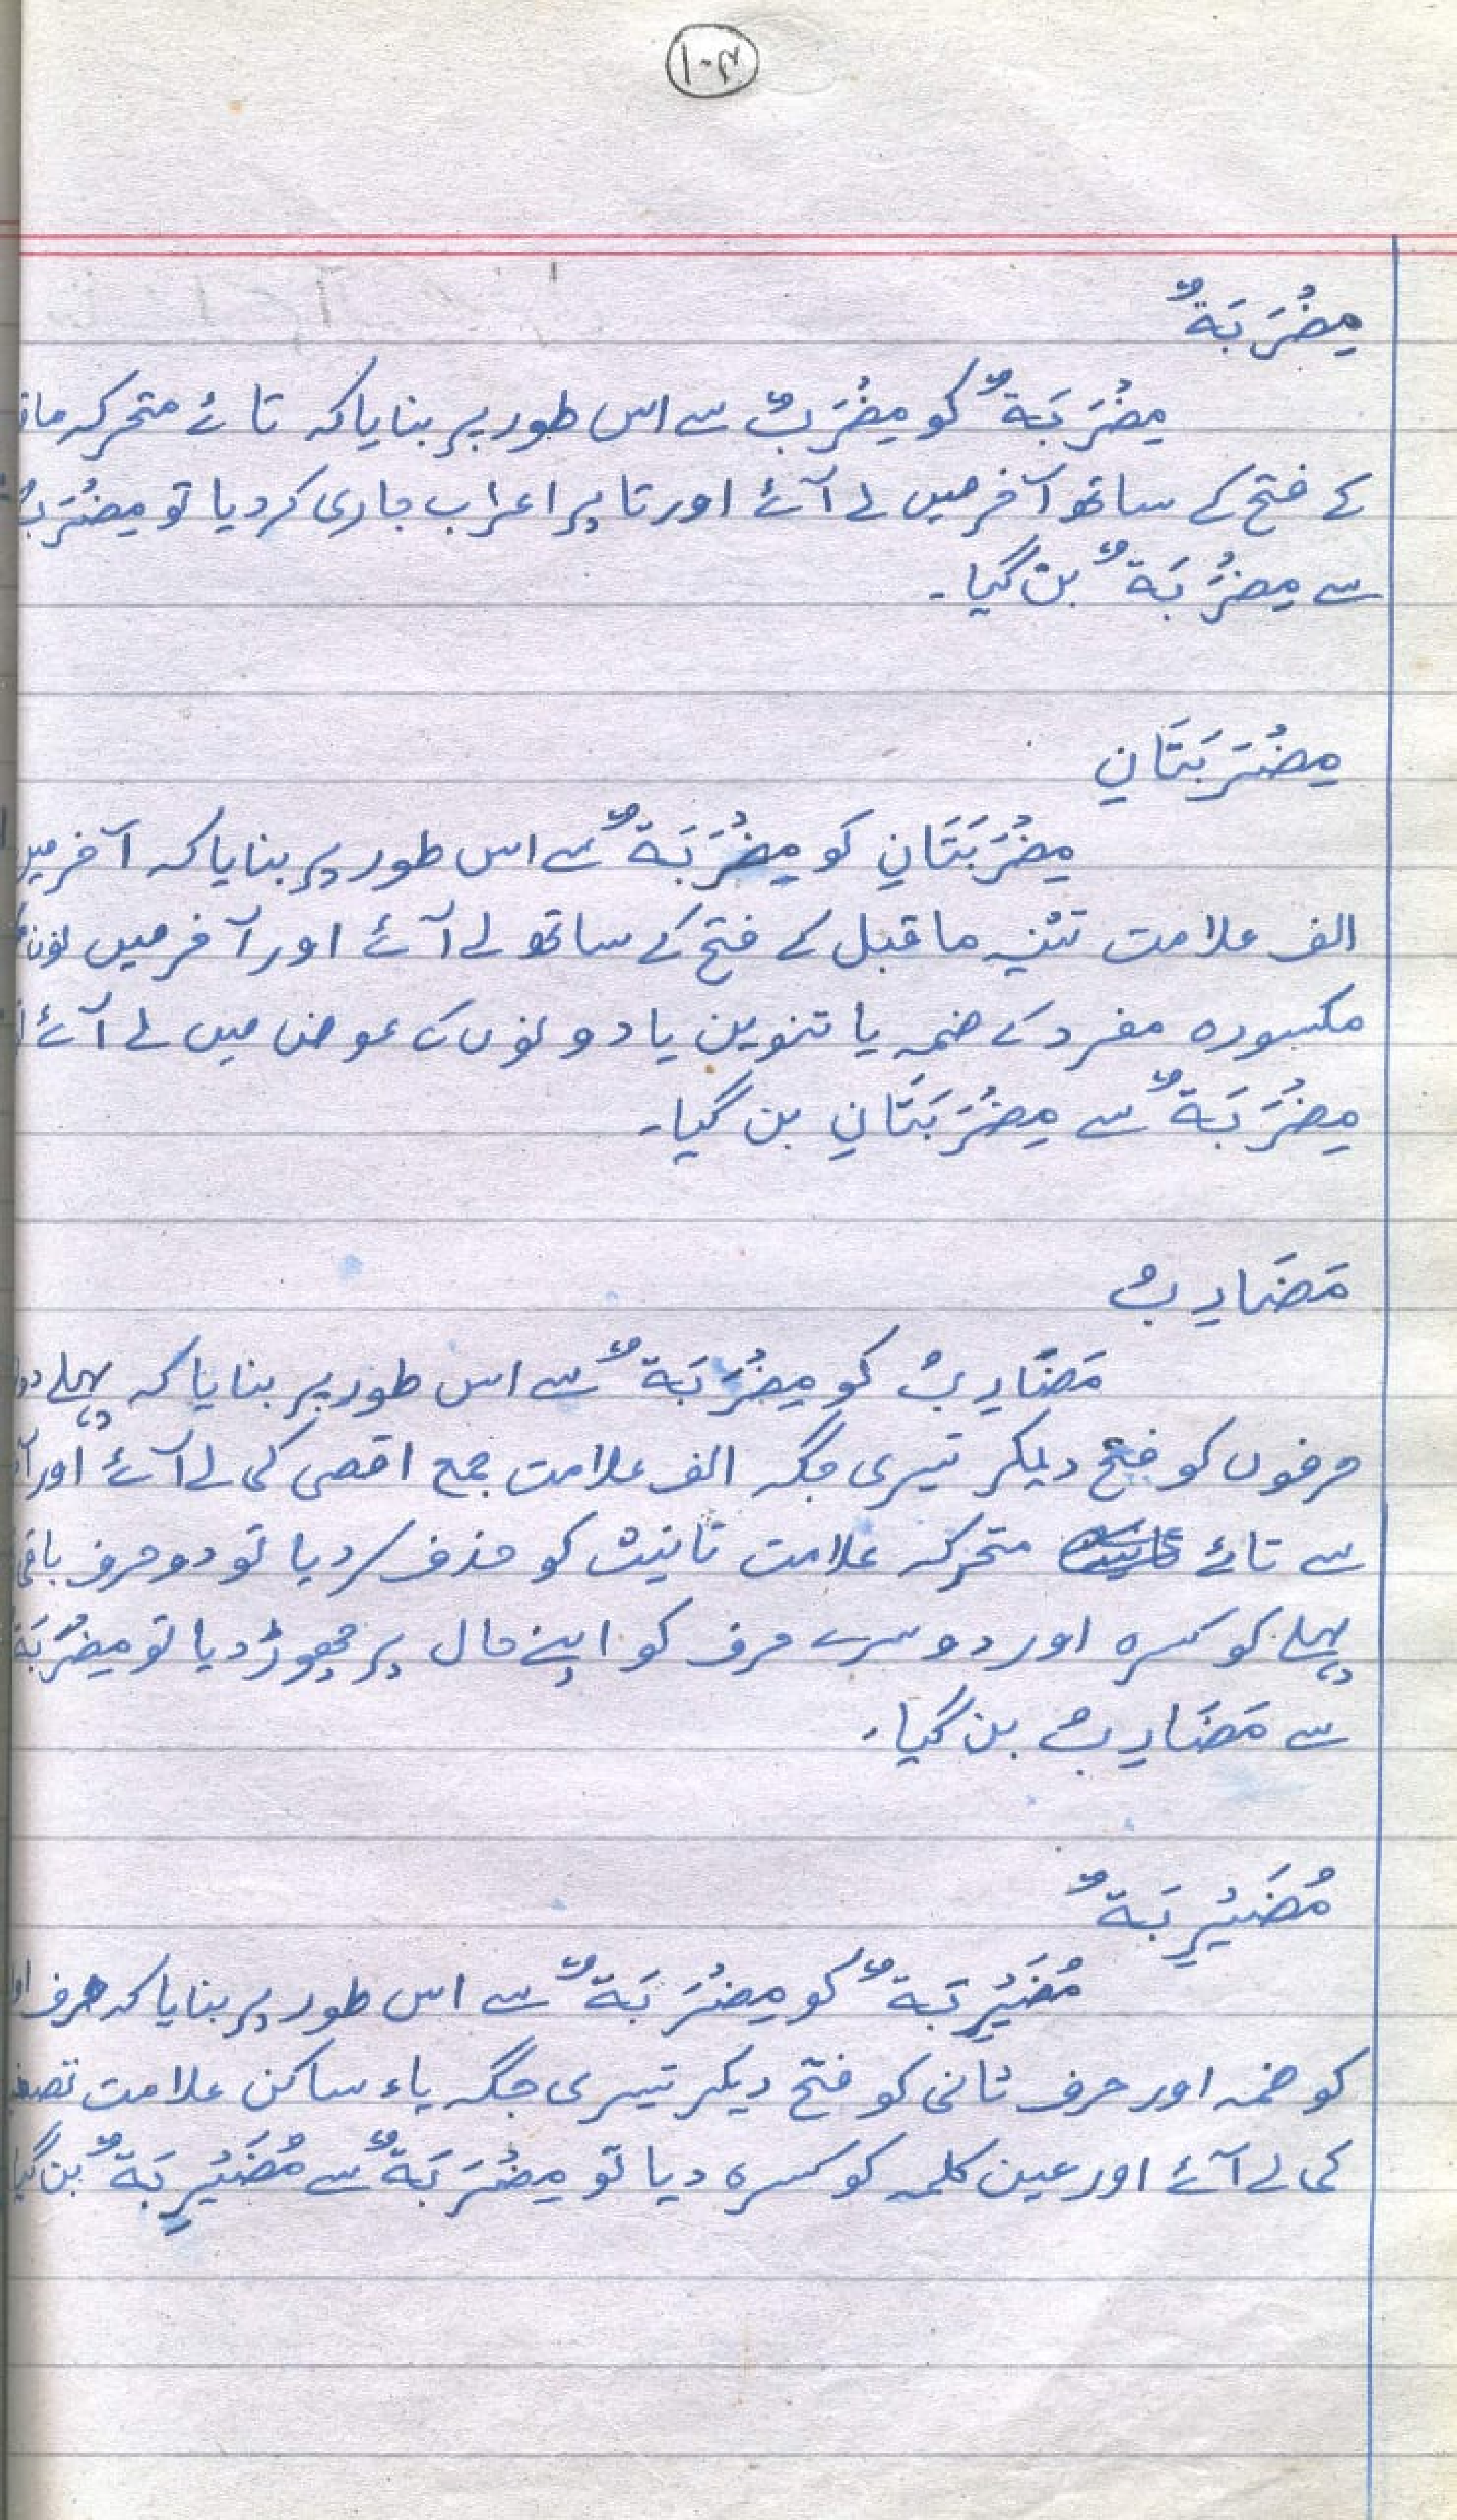 ۱۰۴
مِضْرَبَةٌ
مِضْرَبَةٌ کو مِضْرَبٌ سے اس طور پر بنایا کہ تائے متحرکہ
کے فتح کے ساتھ آخر میں لے آئے اور تا پر اعراب جاری کر دیا تو مِضْرَبٌ
سے مِضْرَبَةٌ بن گیا۔
مِضْرَبَتَانِ
مِضْرَبَتَانِ کو مِضْرَبَةٌ سے اس طور پر بنایا کہ آخر میں
الف علامت تثنیہ ماقبل کے فتح کے ساتھ لے آئے اور آخر میں نون
مکسورہ مفرد کے ضمہ یا تنوین یا دونوں کے عوض میں لے آئے
مِضْرَبَةٌ سے مِضْرَبَتَانِ بن گیا۔
مَضَارِبُ
مَضَارِبُ کو مِضْرَبَةٌ سے اس طور پر بنایا کہ پہلے
حرفوں کو فتح دیکر تیسری جگہ الف علامت جمع اقصی کی لے آئے اور
سے تائے متحرکہ علامت تانیث کو حذف کر دیا تو دو حرف باقی
پہلے کو کسرہ اور دوسرے حرف کو اپنے حال پر چھوڑ دیا تو مِضْرَبَةٌ
سے مَضَارِبُ بن گیا۔
مُضَيْرِبَةٌ
مُضَيْرِبَةٌ کو مِضْرَبَةٌ سے اس طور پر بنایا کہ حرف
کو ضمہ اور حرف ثانی کو فتح دیکر تیسری جگہ یاء ساکن علامت
کی لے آئے اور عین کلمہ کو کسرہ دیا تو مِضْرَبَةٌ سے مُضَيْرِبَةٌ بن گیا